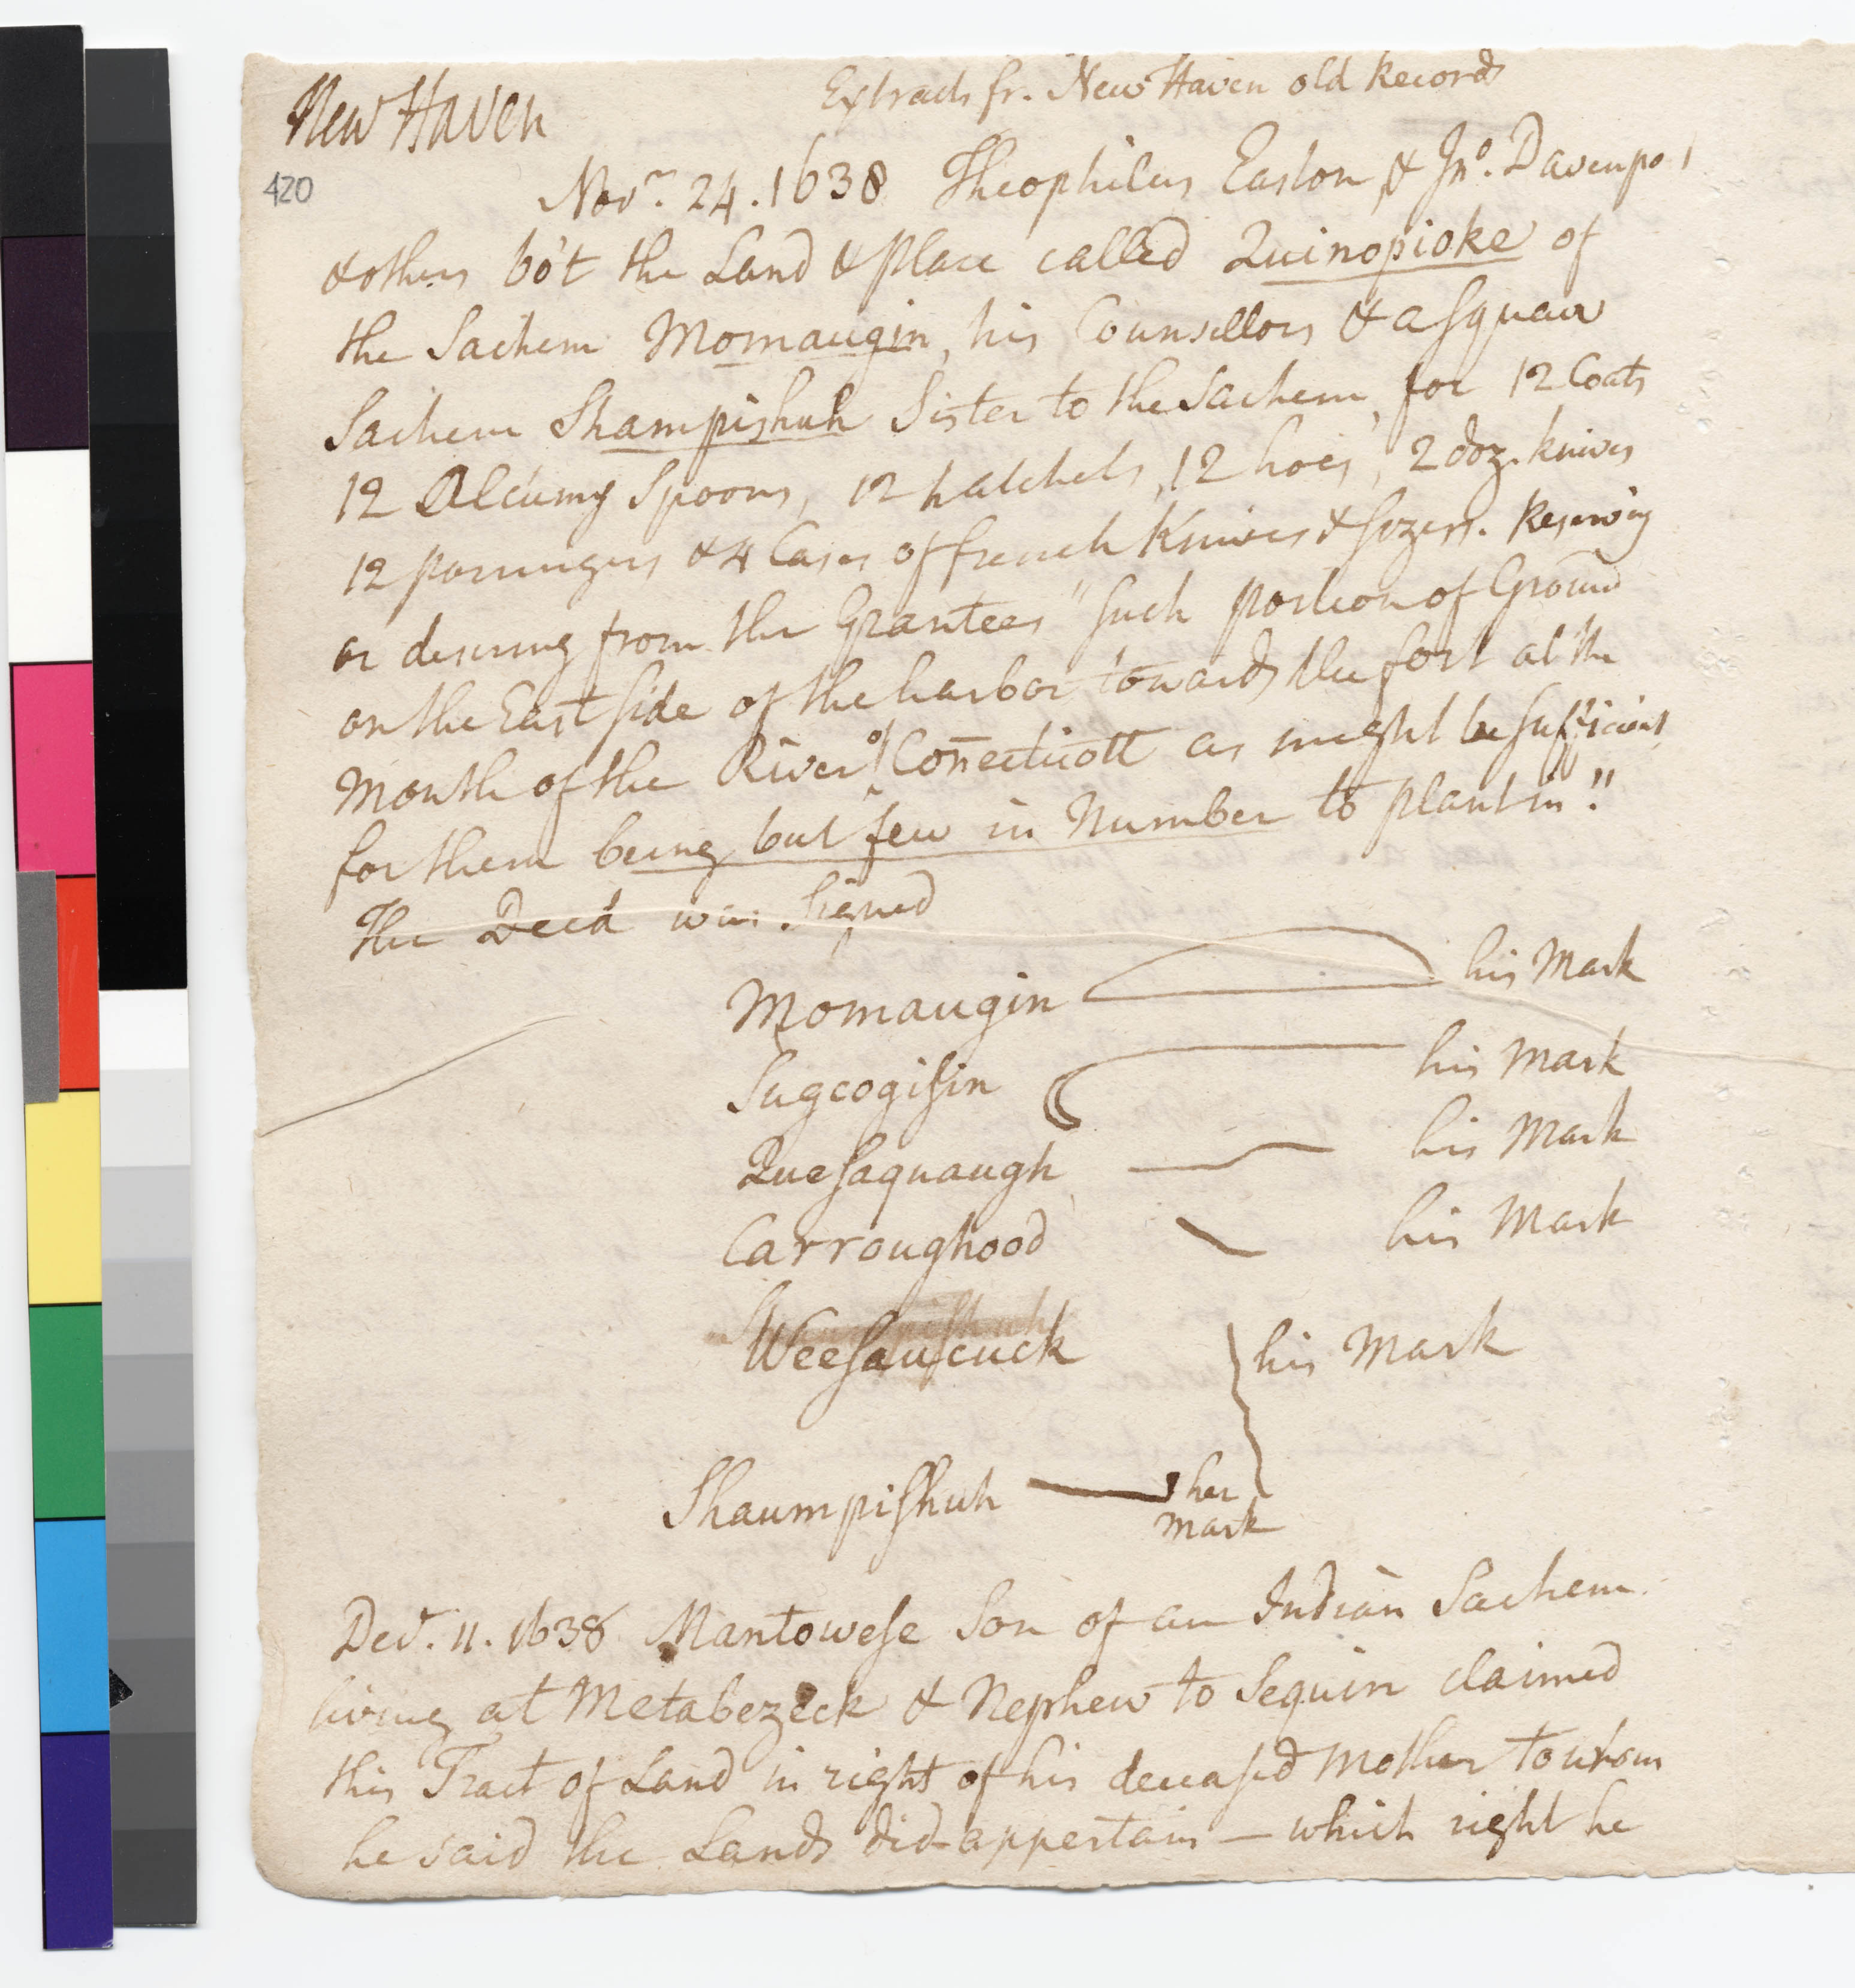 New Haven
Extracts fr. New Haven old Records
420
Novr. 24. 1638 Theophilus Eaton & Jno. Davenpo
& others bo't the Land & Place called Quinopioke of
the Sachem Momaugin, his Counsellors & a Squaw
Sachem Shampishuh Sister to the Sachem, for 12 Coats
12 Alcumy Spoons, 12 hatchets, 12 hoes, 2 doz. knives
12 porringers & 4 Cases of french Knives & sizers. Reserving
or desiring from the Grantees "Such portion of Ground
on the East side of the harbor towards the fort at the
Mouth of the River of Conecticott as might be sufficient
for them being but few in Number to plant in."
The Deed was signed
Momaugin his Mark
Sugcogisin his Mark
Quesaquaugh his Mark
Carroughood his Mark
Weesauscuck his Mark
Shaumpishuh her
Mark
Decr. 11. 1638 Mantowese Son of an Indian Sachem
living at Metabezeck & Nephew to Sequin claimed
this Tract of Land in right of his deceased Mother to whom
he said the Lands did appertain — which right he